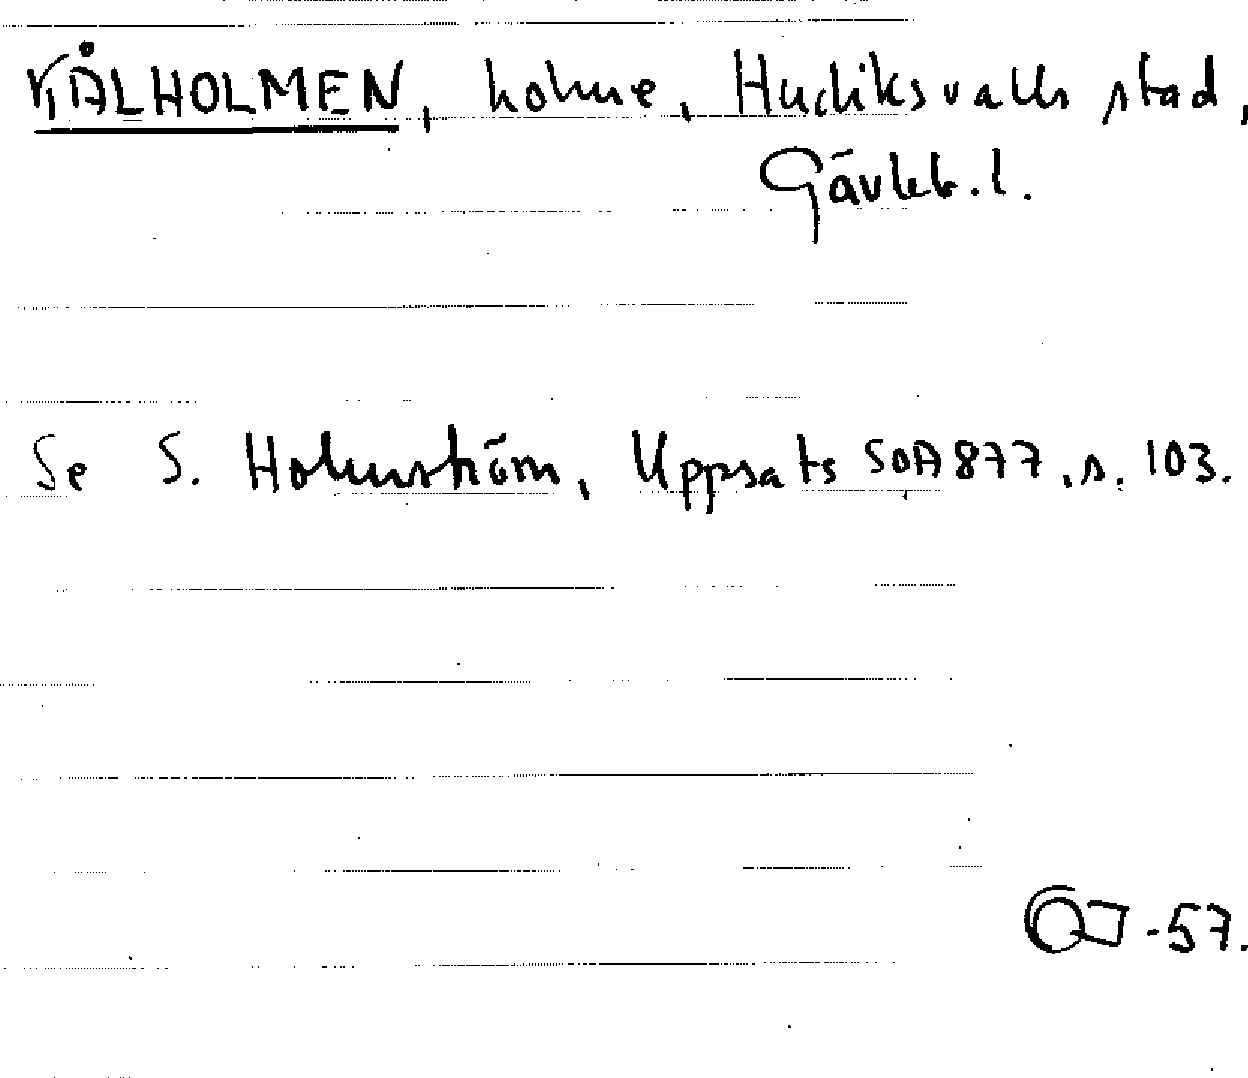 KÅLHOLMEN, holme, Hudiksvalls stad,
Gävleb. l.
Se S. Holmström, Uppsats SOA 877, s. 103.
-57.